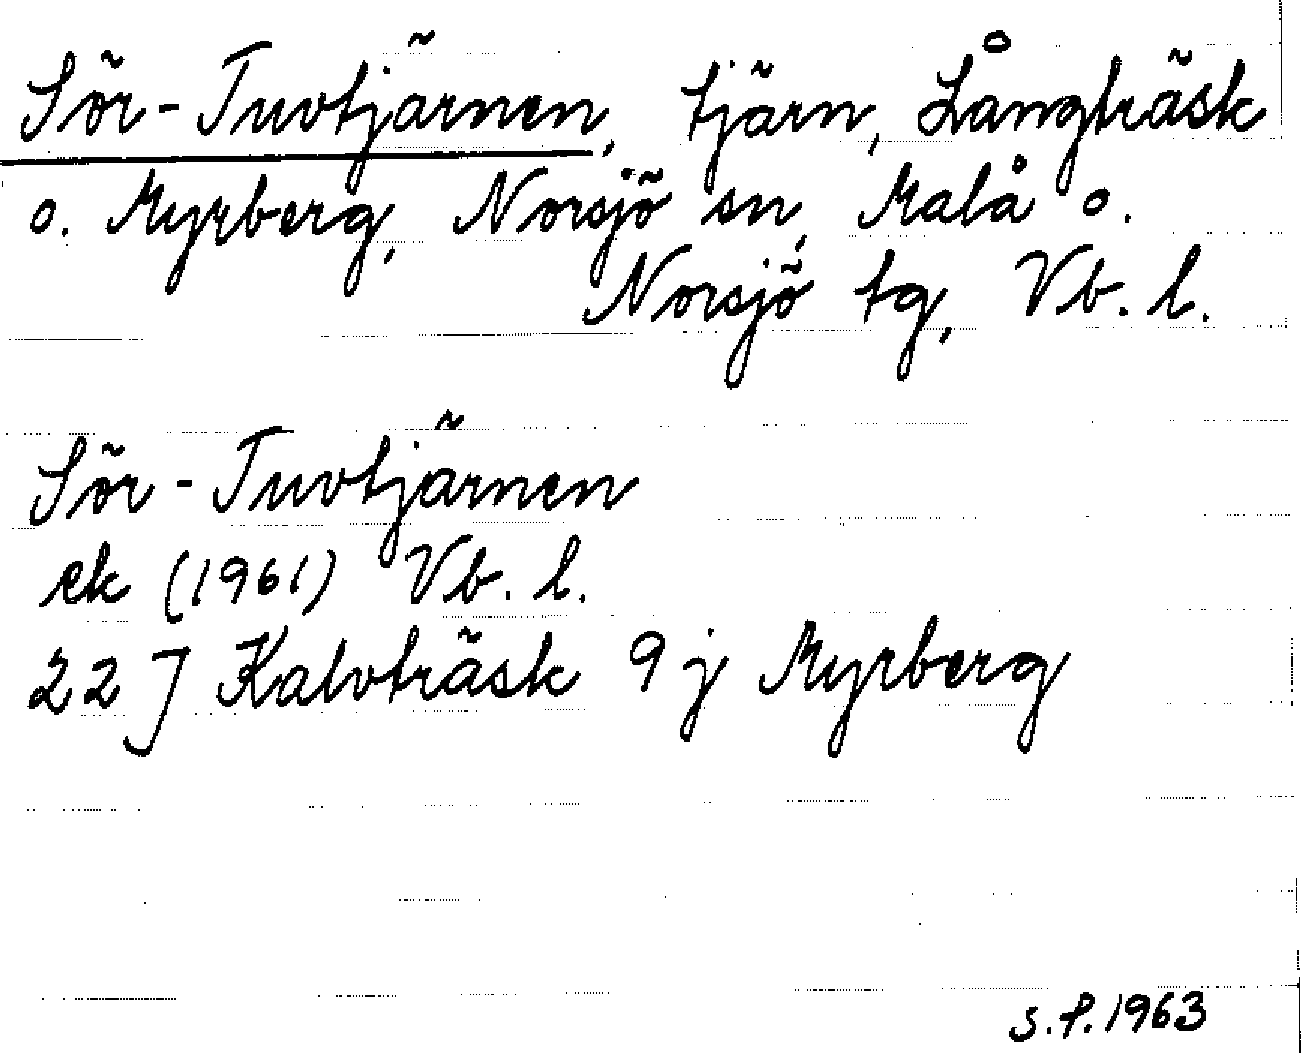 Sör-Tuvtjärnen, tjärn, Långträsk
o. Myrberg, Norsjö sn, Malå o.
Norsjö tg, Vb. l.
Sör-Tuvtjärnen
ek (1961) Vb. l.
22 J Kalvträsk 9 j Myrberg
s.f. 1963